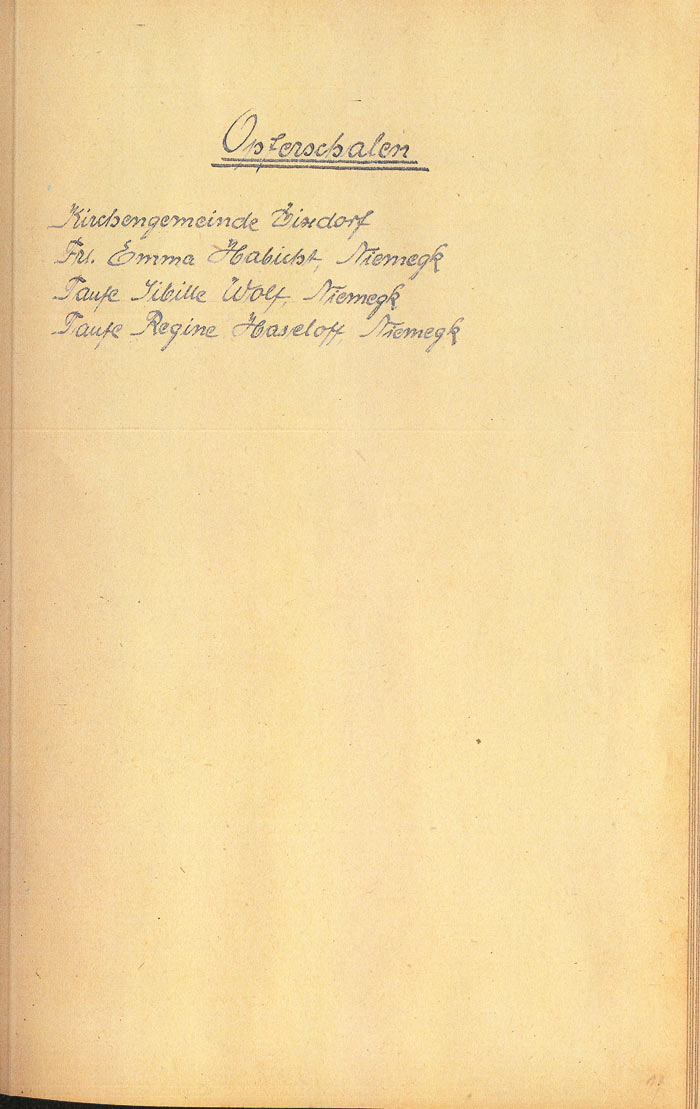 Opferschalen
Kirchengemeinde Zixdorf
Frl. Emma Habicht, Niemegk
Taufe Sibille Wolf, Niemegk
Taufe Regine Haseloff, Niemegk